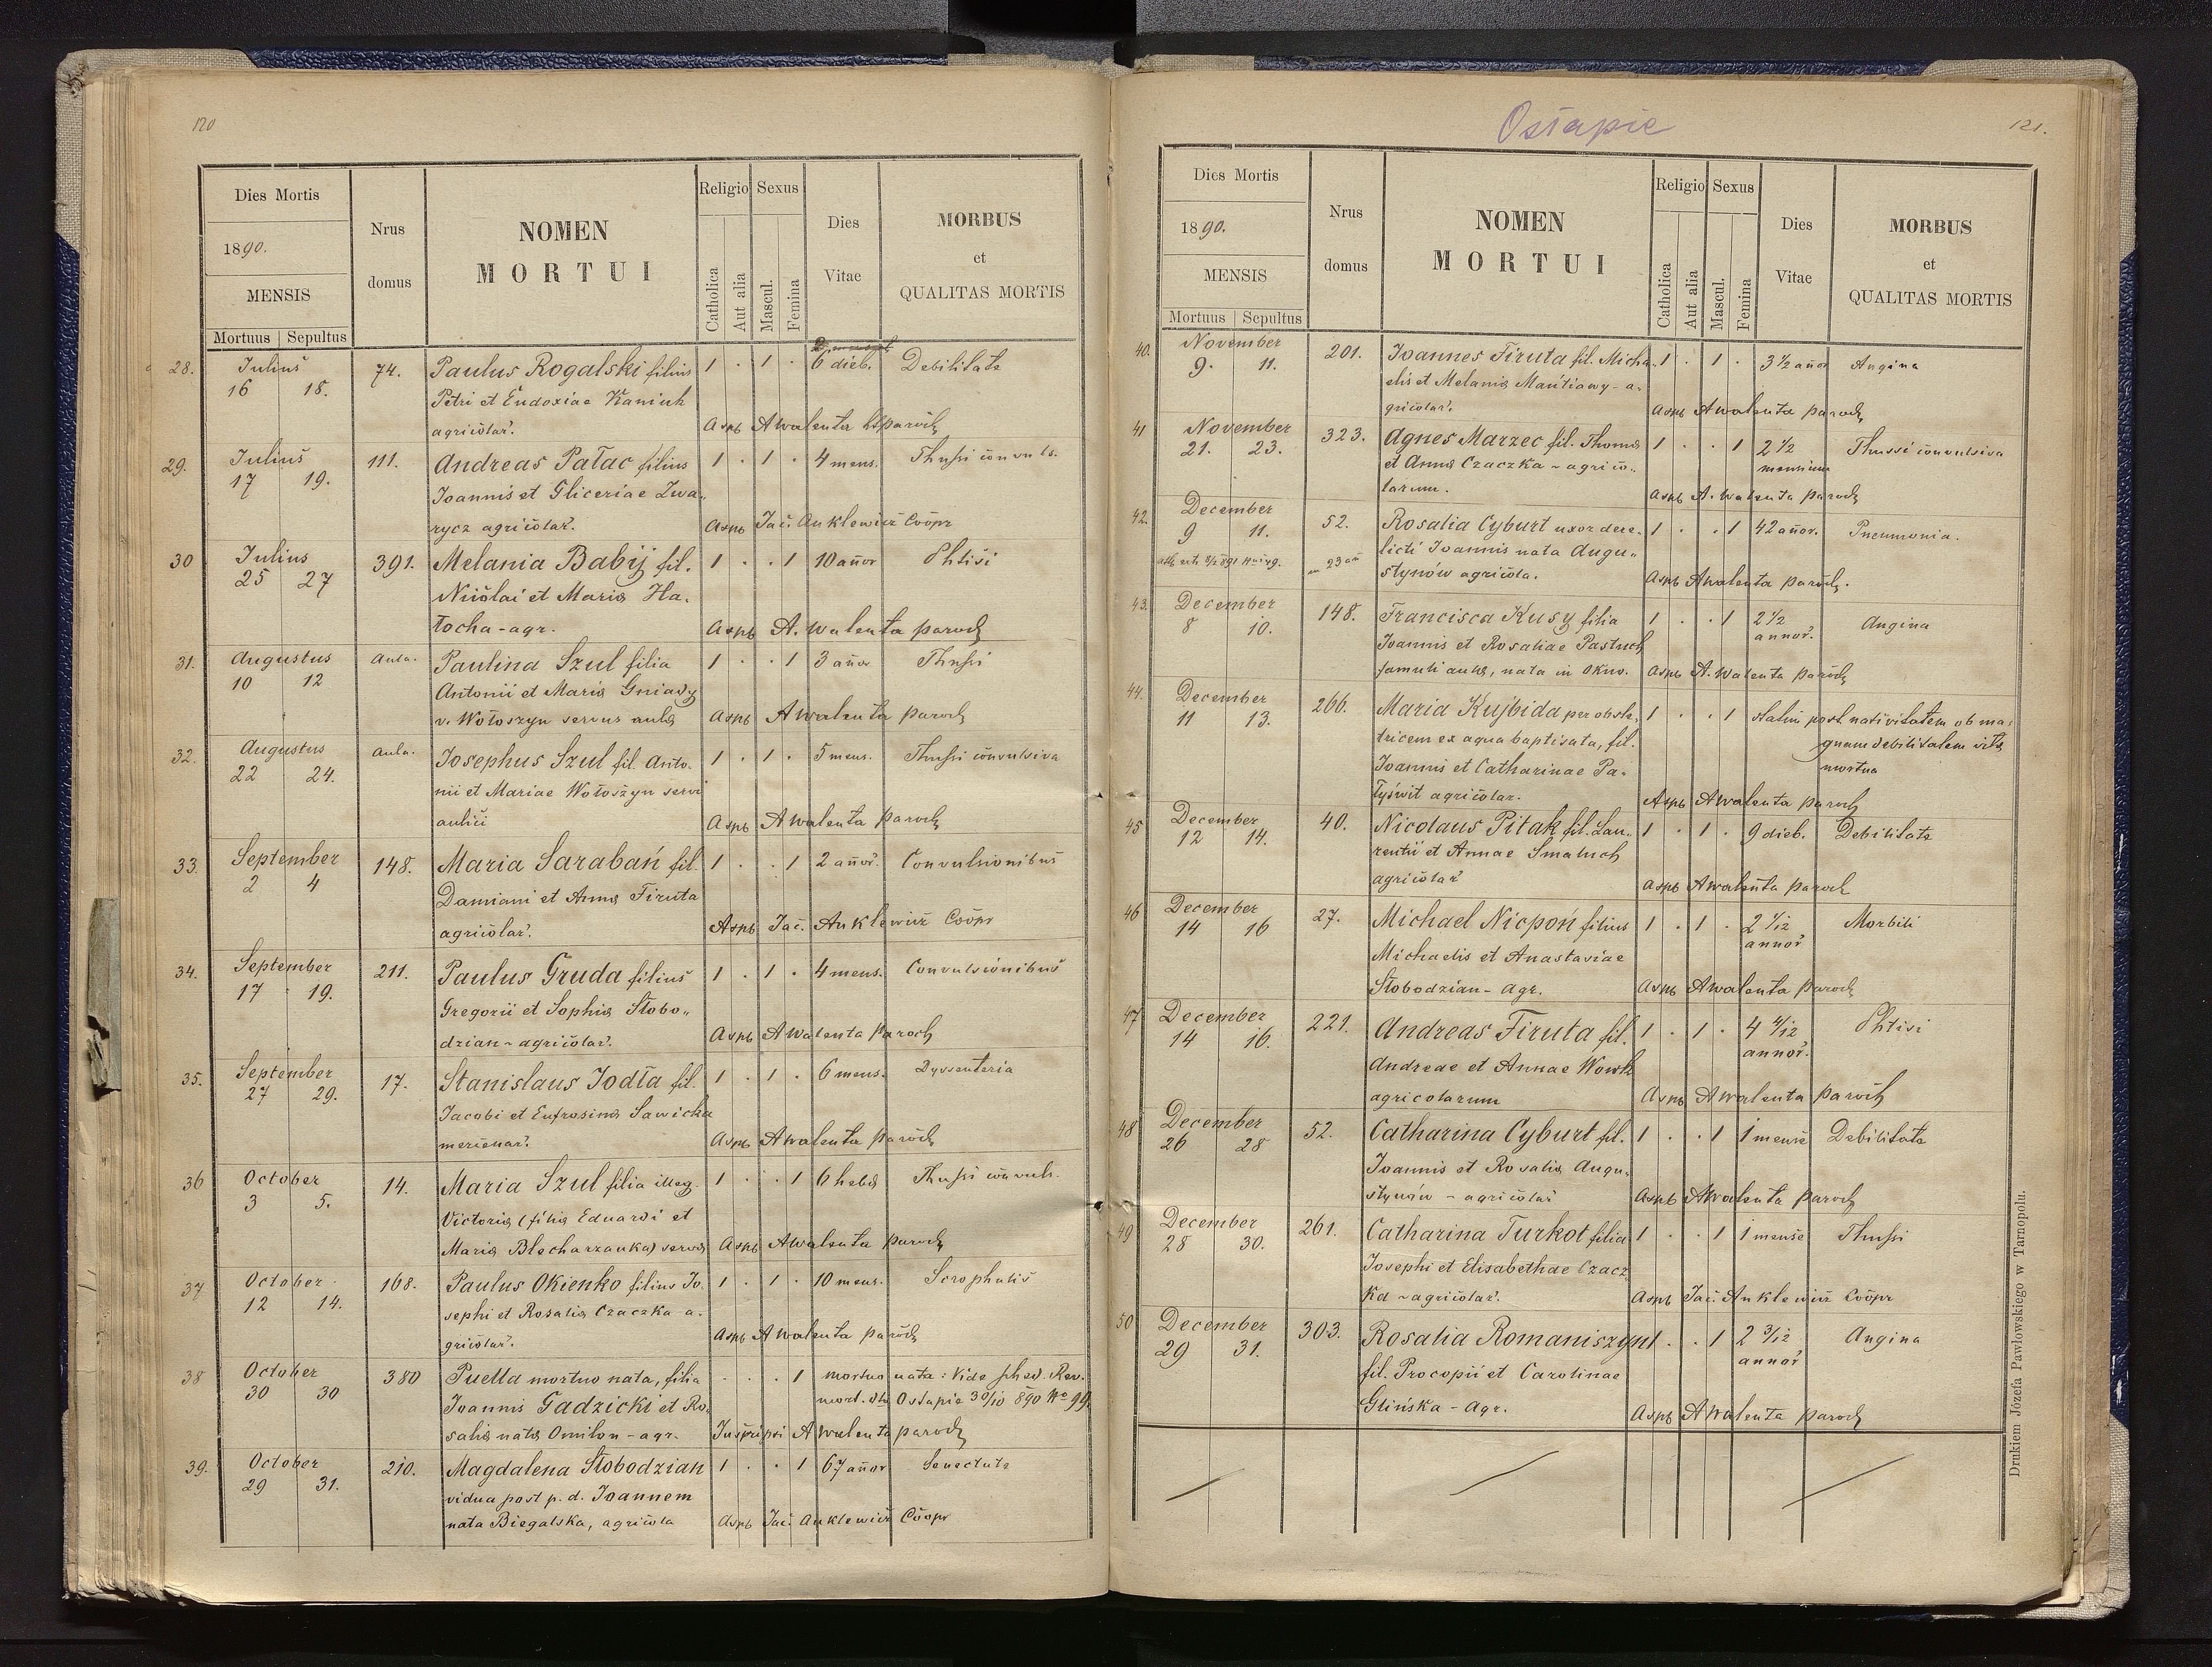 120
Dies Mortis
Nrus domus
NOMEN MORTUI
Religio
Sexus
Dies Vitae
MORBUS et QUALITAS MORTIS
1890.
MENSIS
Mortuus Sepultus
Catholica
Aut alia
Mascul.
Femina
28. Julius 16 18. 74. Paulus Rogalski filius 1 . 1 . 6 dieb. Debilitate
Petri et Eudoxiae Kaniuk
agricolar. Aspb A Walenta paroch
29. Julius 17 19. 111. Andreas Pałac filius 1 . 1 . 4 mens. Thussi convuls.
Joannis et Gliceriae Zwa„
rycz agricolar. Aspb Jac. Anklewicz Coopr
30 Julius 25 27 391. Melania Babij fil. 1 . . 1 10 annor Phtisi
Nicolai et Maria Ha„
łocha - agr. Aspb A. Walenta paroch
31. Augustus 10 12 Aula. Paulina Szul filia 1 . . 1 3 anor Thussi
Antonii et Maria Gniady
v. Wołoszyn servus aula Aspb A Walenta paroch
32. Augustus 22 24. Aula. Josephus Szul fil. Anto„ 1 . 1 . 5 mens. Thussi convulsiva
nii et Mariae Wołoszyn servi
aulici Aspb A Walenta paroch
33. September 2 4 148. Maria Sarabań fil. 1 . . 1 2 annor. Convulsionibus
Damiani et Anna Firuta
agricolar. Aspb Jac. Anklewicz Coopr
34. September 17 19. 211. Paulus Gruda filius 1 . 1 . 4 mens. Convulsionibus
Gregorii et Sophia Słobo„
dzian - agricolar. Aspb A Walenta Paroch
35. September 27 29. 17. Stanislaus Jodła fil. 1 . 1 . 6 mens. Dyssenteria
Jacobi et Eufrosina Sawicka
mercenar. Aspb A Walenta paroch
36 October 3 5. 14. Maria Szul filia illeg. 1 . . 1 6 hebd Thussi convuls.
Victoria (filia Eduardi et
Maria Blecharzanka) serva Aspb A Walenta paroch
37 October 12 14. 168. Paulus Okienko filius Jo„ 1 . 1 . 10 mens. Scrophulis
sephi et Rosalia Czaczka a„
gricolar. Aspb A Walenta paroch
38 October 30 30 380 Puella mortuo nata, filia . . . 1 mortuo nata: Vide sched. Rev.
Joannis Gadzicki et Ro„ mort. dto Ostapie 30/10 890 No 99.
salia nata Omilon - agr. Inscripsi A Walenta paroch
39. October 29 31. 210. Magdalena Słobodzian 1 . . 1 67 annor Senectute
vidua post p. d. Joannem
nata Biegalska, agricola Aspb Jac. Anklewicz Coopr
Ostapie
121.
Dies Mortis
Nrus domus
NOMEN MORTUI
Religio
Sexus
Dies Vitae
MORBUS et QUALITAS MORTIS
1890.
MENSIS
Mortuus Sepultus
Catholica
Aut alia
Mascul.
Femina
40. November 9. 11. 201. Joannes Firuta fil. Micha„ 1 . 1 . 3 1/2 anor Angina
elis et Melania Mańtiawy - a„
gricolar. Aspb A Walenta paroch
41 November 21. 23. 323. Agnes Marzec fil. Thoma 1 . . 1 2 1/2 mensium Thussi convulsiva
et Anna Czaczka - agrico„
larum. Aspb A. Walenta paroch
42. December 9 11. 52. Rosalia Cyburt uxor dere„ 1 . . 1 42 annor. Pneumonia.
licti Joannis nata Augu„
stynów agricola. Aspb A Walenta paroch.
43. December 8 10. 148. Francisca Kusy filia 1 . . 1 2 1/2 annor. Angina
Joannis et Rosaliae Pastuch
famuli aula, nata in Okno. Aspb A. Walenta paroch
44. December 11 13. 266. Maria Kujbida per obste„ 1 . . 1 statim post nativitatem ob ma„
tricem ex aqua baptisata, fil. gnam debilitatem vita
Joannis et Catharinae Pa„ mortua
łyświt agricolar. Aspb A Walenta paroch
45 December 12 14. 40. Nicolaus Pitak fil. Lau„ 1 . 1 . 9 dieb. Debilitate
rentii et Annae Smaluch
agricolar Aspb A Walenta paroch
46 December 14 16 27. Michael Nicpoń filius 1 . 1 . 2 1/12 annor Morbili
Michaelis et Anastasiae
Słobodzian - agr. Aspb A Walenta paroch
47 December 14 16. 221. Andreas Firuta fil. 1 . 1 . 4 4/12 annor. Phtisi
Andreae et Annae Wowk
agricolarum Aspb A Walenta paroch
48 December 26 28 52. Catharina Cyburt fil. 1 . . 1 1 mense Debilitate
Joannis et Rosalia Augu„
stynów - agricolar Aspb A Walenta paroch
49 December 28 30. 261. Catharina Turkot filia 1 . . 1 1 mense Thussi
Josephi et Elisabethae Czacz
ka - agricolar. Aspb Jac. Anklewicz Coopr
50 December 29 31. 303. Rosalia Romaniszyn 1 . . 1 2 3/12 annor Angina
fil. Procopii et Carolinae
Glińska - Agr. Aspb A Walenta paroch
Drukiem Józefa Pawłowskiego w Tarnopolu.